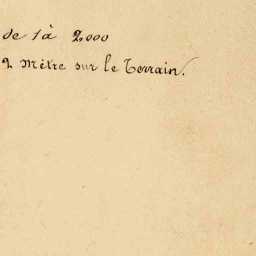 de 1 à 2000
2 mètre sur le Terrain.